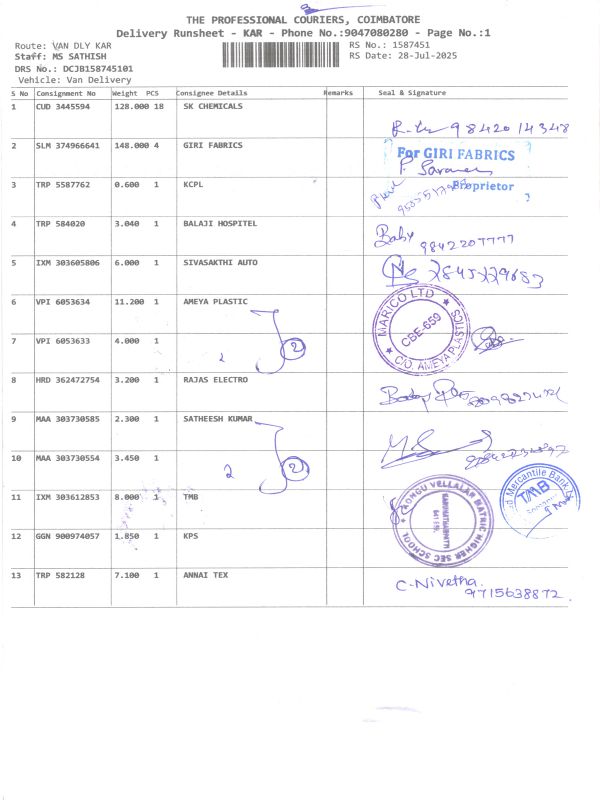 THE PROFESSIONAL COURIERS, COIMBATORE
Delivery Runsheet - KAR - Phone No.:9047080280 - Page No.:1
Route: VAN DLY KAR RS No.: 1587451
Staff: MS SATHISH RS Date: 28-Jul-2025
DRS No.: DCJB158745101
Vehicle: Van Delivery
S No Consignment No Weight PCS Consignee Details Remarks Seal & Signature
1 CUD 3445594 128.000 18 SK CHEMICALS
98420 14348
2 SLM 374966641 148.000 4 GIRI FABRICS
For GIRI FABRICS
Proprietor
3 TRP 5587762 0.600 1 KCPL
4 TRP 584020 3.040 1 BALAJI HOSPITEL
Baby 9842207777
5 IXM 303605806 6.000 1 SIVASAKTHI AUTO
6 VPI 6053634 11.200 1 AMEYA PLASTIC
MARICO LTD
CBE-659
C/O. AMEYA PLASTICS
7 VPI 6053633 4.000 1
2 2
8 HRD 362472754 3.200 1 RAJAS ELECTRO
9 MAA 303730585 2.300 1 SATHEESH KUMAR
10 MAA 303730554 3.450 1
2 2
11 IXM 303612853 8.000 1 TMB
KONGU VELLALAR MATRIC HIGHER SEC SCHOOL
Mercantile Bank
TMB
12 GGN 900974057 1.850 1 KPS
13 TRP 582128 7.100 1 ANNAI TEX
C-Nivetha.
9715638872